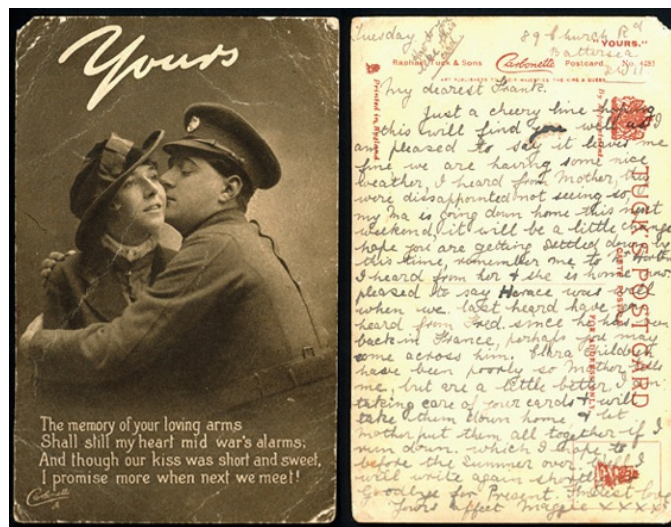 Yours
The memory of your loving arms
Shall still my heart mid war's alarms;
And though our kiss was short and sweet,
I promise more when next we meet!
Carbonette
Tuesday
89 Church Rd
Battersea
SW11
"YOURS."
Raphael Tuck & Sons Carbonette Postcard. No. 4283
ART PUBLISHERS TO THEIR MAJESTIES THE KING & QUEEN
Printed in England
TUCK'S POSTCARD
CARTE POSTALE
FOR ADDRESS ONLY
My dearest Frank.
Just a cheery line hoping
this will find you well as I
am pleased to say it leaves me
fine we are having some nice
weather, I heard from Mother, they
were disappointed not seeing so,
my Ma is going down home this next
weekend, it will be a little change
hope you are getting settled down by
this time, remember me to
I heard from her & she is home now
pleased to say Horace was well
when we last heard have you
heard from Fred since he has been
back in France, perhaps you may
come across him. Clara children
have been poorly so Mother tells
me, but are a little better I am
taking care of your cards & will
take them down home, & let
mother put them all together if I
run down. which I hope to
before the Summer over. Well I
will write again shortly
Goodbye for Present. Fondest love
Yours affect Maggie xxxx